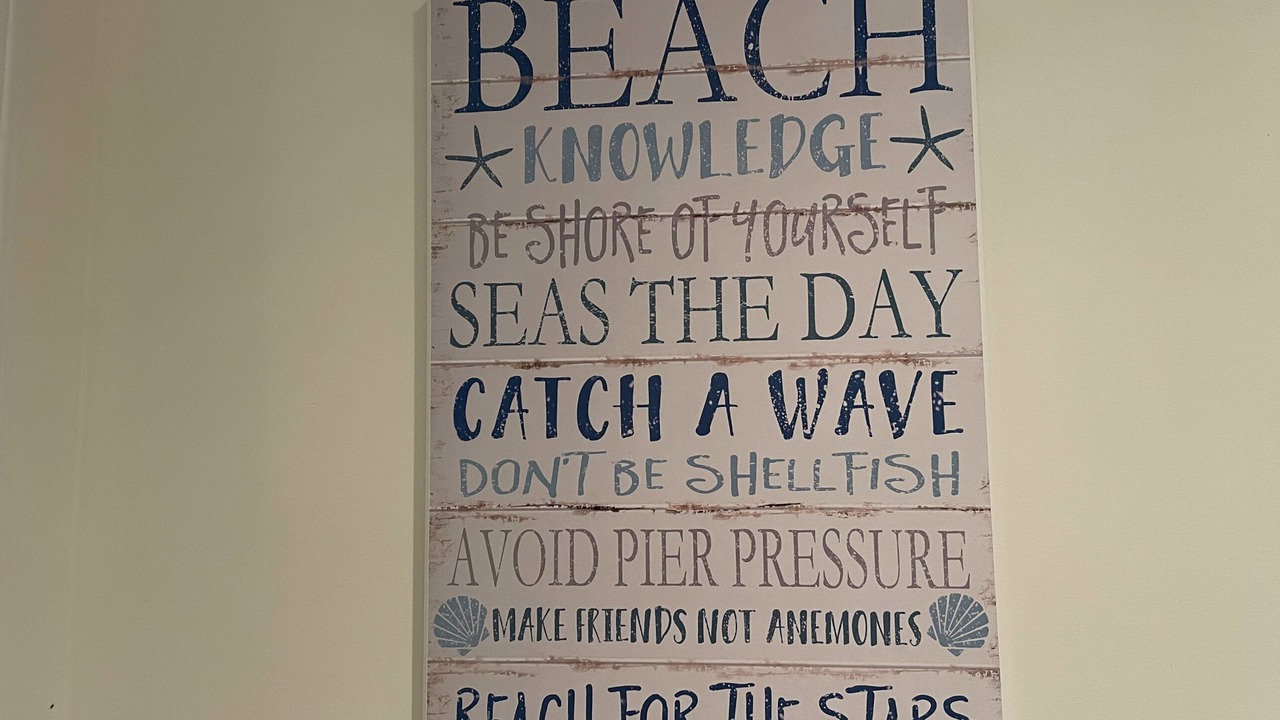 BEACH
KNOWLEDGE
BE SHORE OF YOURSELF
SEAS THE DAY
CATCH A WAVE
DON'T BE SHELLFISH
AVOID PIER PRESSURE
MAKE FRIENDS NOT ANEMONES
REACH FOR THE STARS